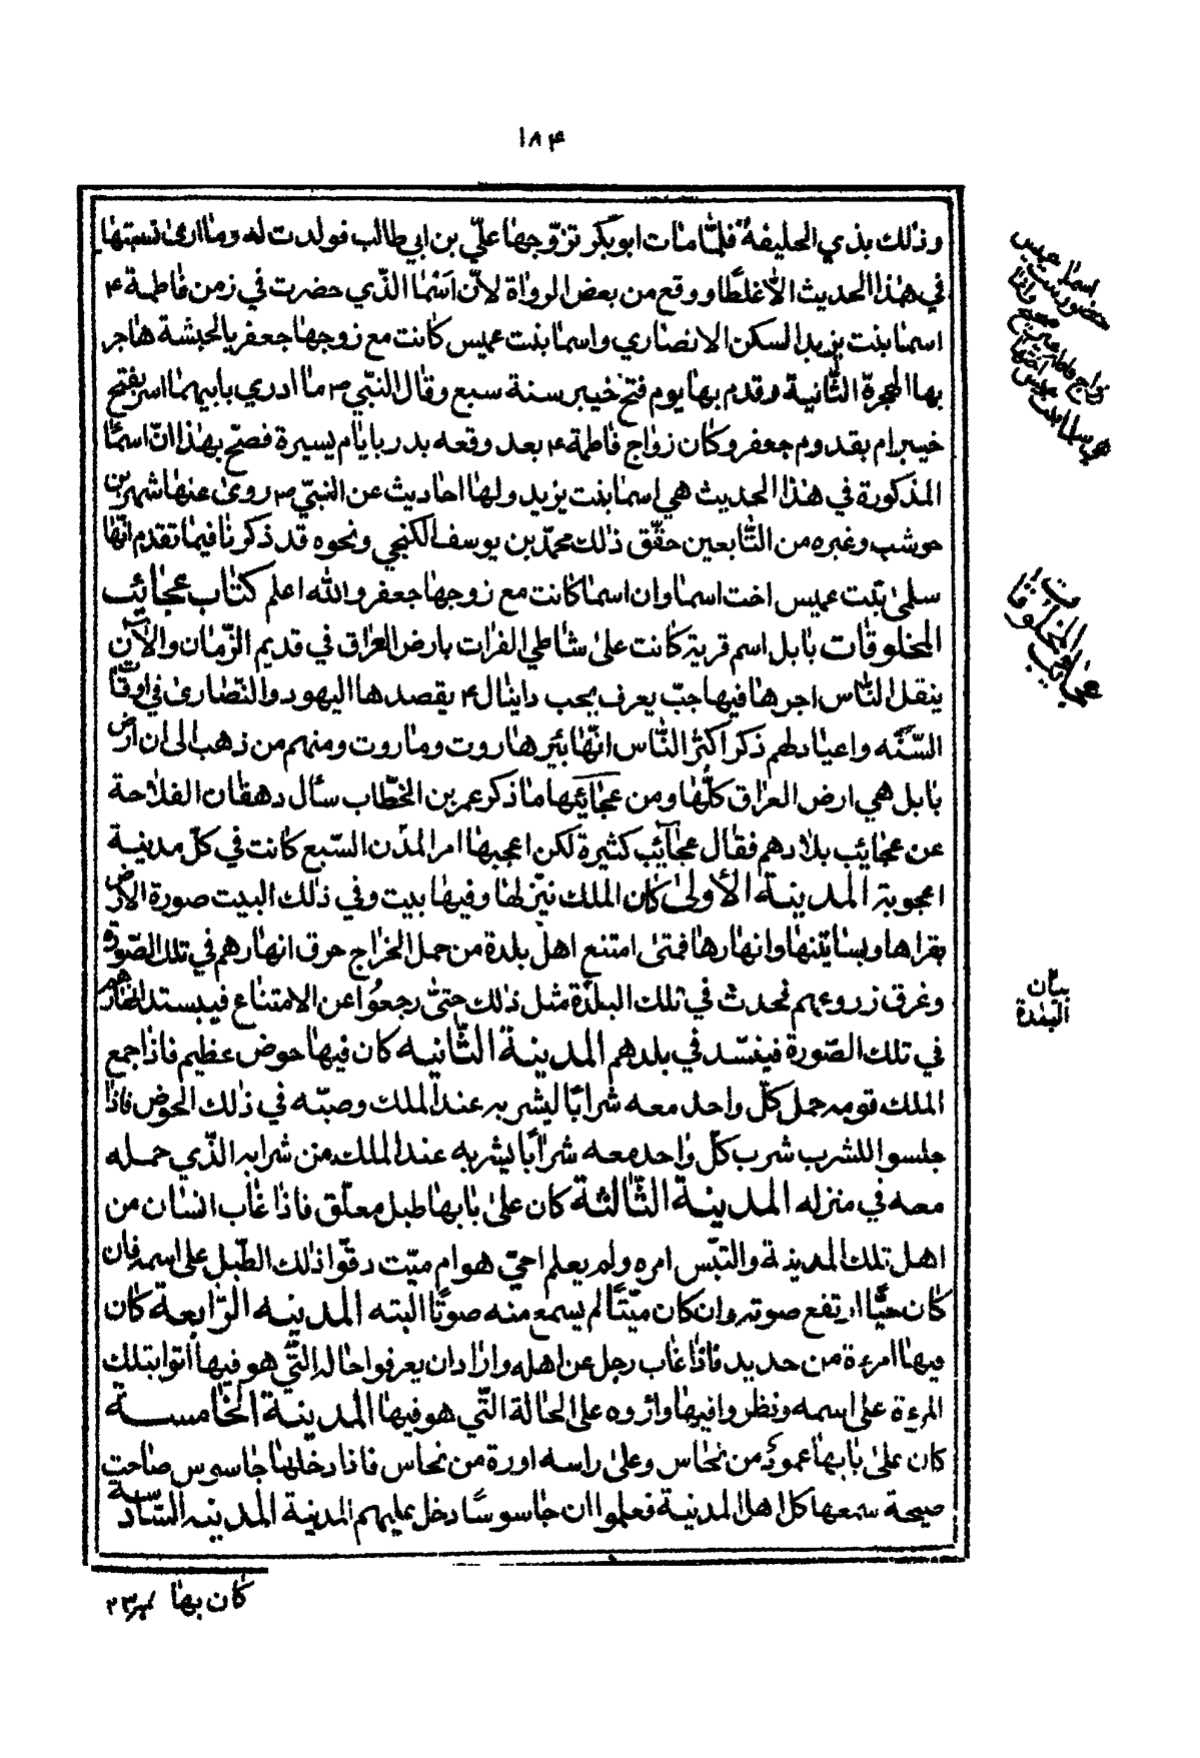 ۱۸۴
وذلك بذي الحليفة فلمّا مات ابو بكر تزوّجها عليّ بن ابي طالب فولدت له وما ارىٰ نسبتها
في هٰذا الحديث الّا غلطًا ووقع من بعض الرواة لانّ اسْما الّذي حضرت في زمن فاطمة ۴
اسما بنت يزيد السكن الانصاري واسما بنت عميس كانت مع زوجها جعفر بالحبشة هاجر
بها الهجرة الثّانية وقدم بها يوم فتح خيبر سنة سبع وقال النّبي ص ما ادري بايهما اسر بفتح
خيبر ام بقدوم جعفر وكان زواج فاطمة ۴ بعد وقعه بدر بايّام يسيرة فصحّ بهٰذا انّ اسمًا
المذكورة في هٰذا الحديث هي اسما بنت يزيد ولها احاديث عن النبيّ ص روىٰ عنها شهر بن
حوشب وغيره من التّابعين حقّق ذلك محمّد بن يوسف الكنجي ونحوه قد ذكرنا فيما تقدم انّها
سلمىٰ بنت عميس اخت اسما وان اسما كانت مع زوجها جعفر والله اعلم كتاب عجائيب
المخلوقات بابل اسم قرية كانت علىٰ شاطي الفرات بارض العراق في قديم الزّمان والآن
ينقل النّاس اجرها فيها جبّ يعرف بجب دانيال ۴ يقصدها اليهود والنّصارىٰ في اوقات
السّنه واعيادهم ذكر اكثر النّاس انّها بئر هاروت وماروت ومنهم من ذهب الى ان ارض
بابل هي ارض العراق كلّها ومن عجآئبها ما ذكر عمر بن الخطّاب سأل دهقان الفلاحة
عن عجائب بلادهم فقال عجآئب كثيرة لكن اعجبها امر المدن السّبع كانت في كلّ مدينة
اعجوبة المدينة الأولىٰ كان الملك ينزلها وفيها بيت وفي ذلك البيت صورة الارض
بقراها وبساتينها وانهارها فمتىٰ امتنع اهل بلدة من حمل الخراج خرق انهارهم في تلك الصّورة
وغرق زروعهم فحدث في تلك البلدة مثل ذلك حتّىٰ رجعوا عن الامتناع فيبستد انهارهم
في تلك الصّورة فينسّد في بلدهم المدينة الثّانيه كان فيها حوض عظيم فاذا جمع
الملك قومه حمل كلّ واحد معه شرابًا ليشربه عند الملك وصبّه في ذلك الحوض فاذا
جلسوا للشرب شرب كلّ واحد معه شرابًا ليشربه عند الملك من شرابه الّذي حمله
معه في منزله المدينة الثّالثة كان علىٰ بابها طبل معلّق فاذا غاب انسان من
اهل تلك المدينة والتبّس امره ولم يعلم احيّ هو ام ميّت دقّوا ذلك الطّبل على اسمه فان
كان حيًّا ارتفع صوته وان كان ميّتًا لم يسمع منه صوتًا البته المدينه الرّابعة كان
فيها امرءة من حديد فاذا غاب رجل عن اهله وارادان يعرفوا حاله الّتي هو فيها اتوا بتلك
المرءة على اسمه ونظروا فيها وأروه على الحالة الّتي هو فيها المدينة الخامسة
كان علىٰ بابها عمود من نحاس وعلىٰ راسه اورة من نحاس فاذا دخلها جاسوس صاحت
صيحة سمعها كل اهل المدينة فعلموا ان جاسوسًا دخل عليهم المدينة المدينه السّادسة
كان بها
اسما عميس
عجايب المخلوقات
بيان البلدة